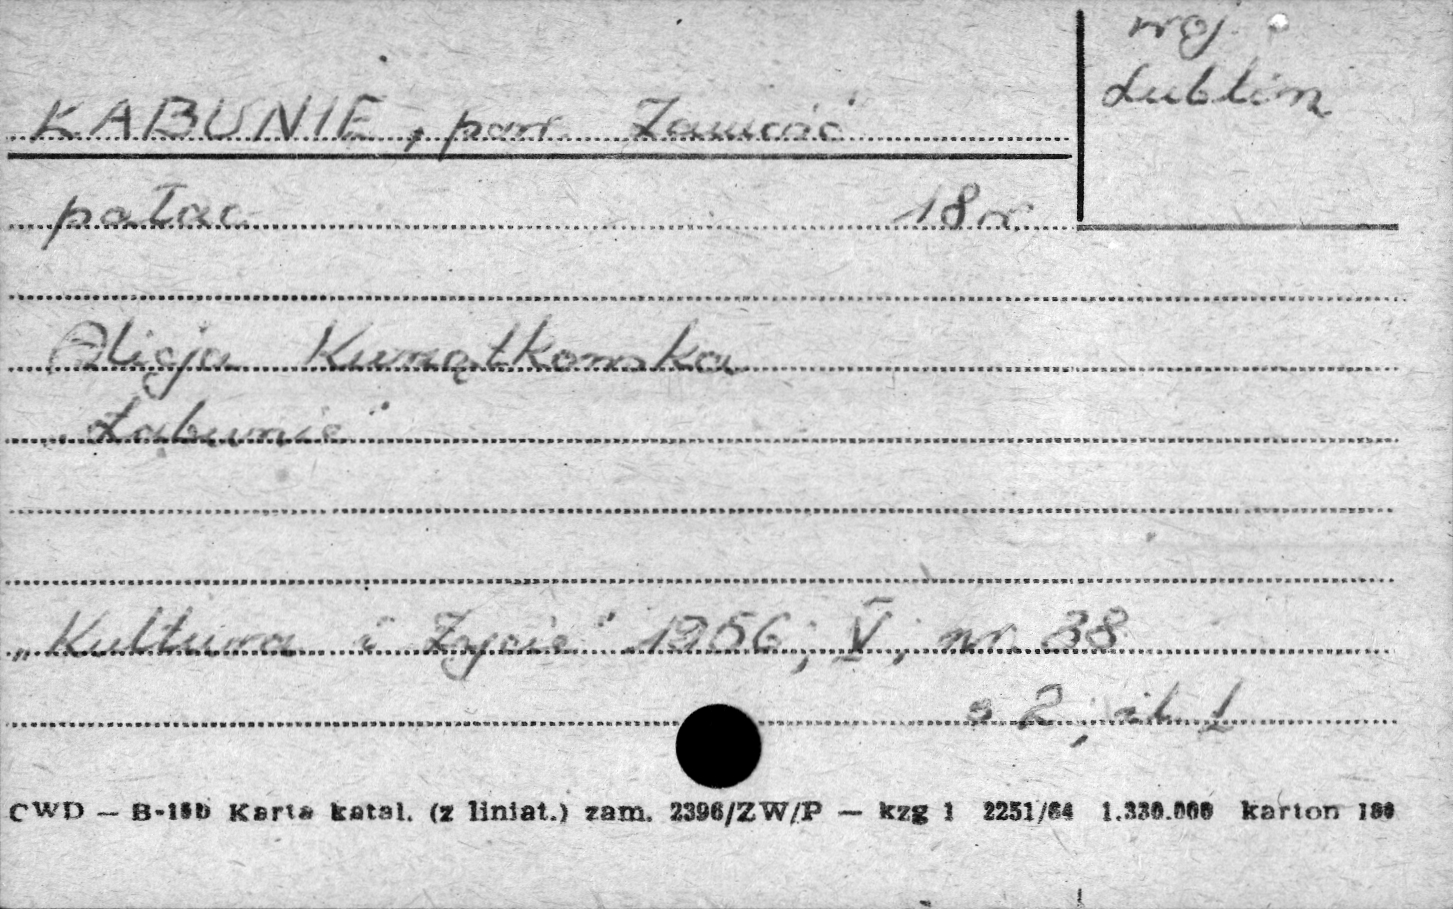 woj.
Lublin
ŁABUNIE, pow. Zamość
pałac 18 w.
Alicja Kwiatkowska
„Łabunie"
„Kultura i Życie" 1956, V, nr 38
s 2, il. 1
CWD — B-18b Karta katal. (z liniat.) zam. 2396/ZW/P — kzg 1 2251/64 1.330.000 karton 180